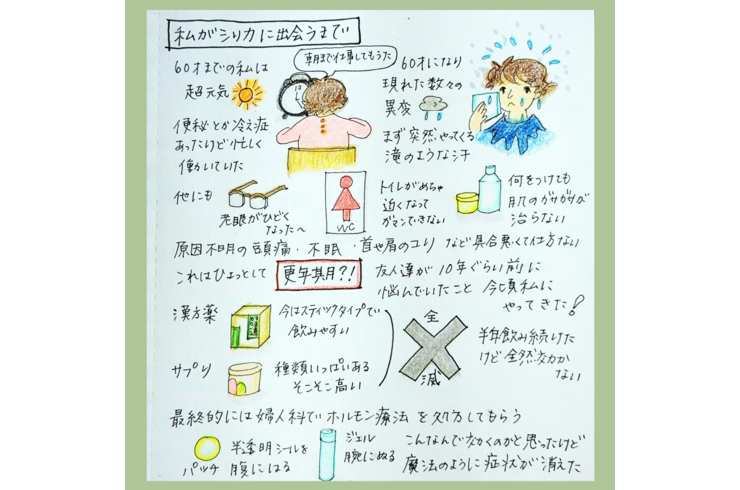 私がシリカに出会うまで
60才までの私は
超元気
朝まで仕事してもうた
60才になり
現れた数々の
異変
便秘とか冷え症
あったけど忙しく
働いていた
まず突然やってくる
滝のような汗
他にも
老眼がひどく
なったへ
WC
トイレがめちゃ
近くなって
ガマンできない
何をつけても
肌のガサガサが
治らない
原因不明の頭痛・不眠・首や肩のコリ など具合悪くて仕方ない
これはひょっとして 更年期?!
友人達が10年ぐらい前に
悩んでいたこと 今頃私に
やってきた!
漢方薬
今はスティックタイプで
飲みやすい
サプリ
種類いっぱいある
そこそこ高い
全滅
半年飲み続けた
けど全然効か
ない
最終的には婦人科でホルモン療法を処方してもらう
パッチ
半透明シールを
腹にはる
ジェル
腕にぬる
こんなんで効くのかと思ったけど
魔法のように症状が消えた